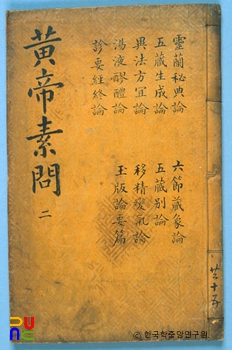 黃帝素問 二
靈蘭秘典論
六節藏象論
五藏生成論
五藏別論
異法方宜論
移精變氣論
湯液醪醴論
玉版論要篇
診要經終論
共十五
ⓒ한국학중앙연구원